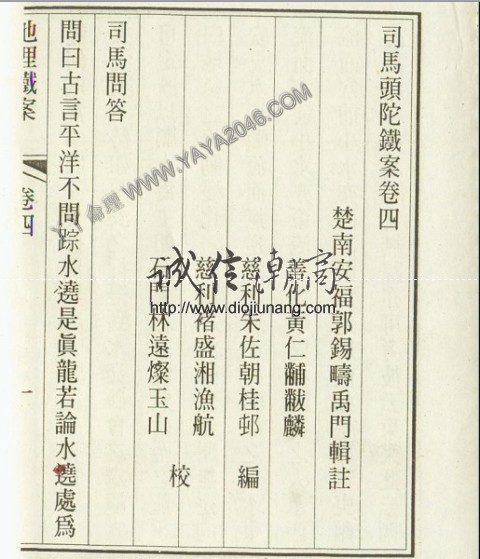 司馬頭陀鐵案卷四
楚南安福郭錫疇禹門輯註
善化黃仁黼黻麟
慈利朱佐朝桂邨 編
慈利褚盛湘漁航
石門林遠燦玉山
校
司馬問答
問曰古言平洋不問踪水遶是眞龍若論水遶處為
地理鐵案
卷四
一
命理 WWW.YAYA2046.COM
http://www.diojiunang.com